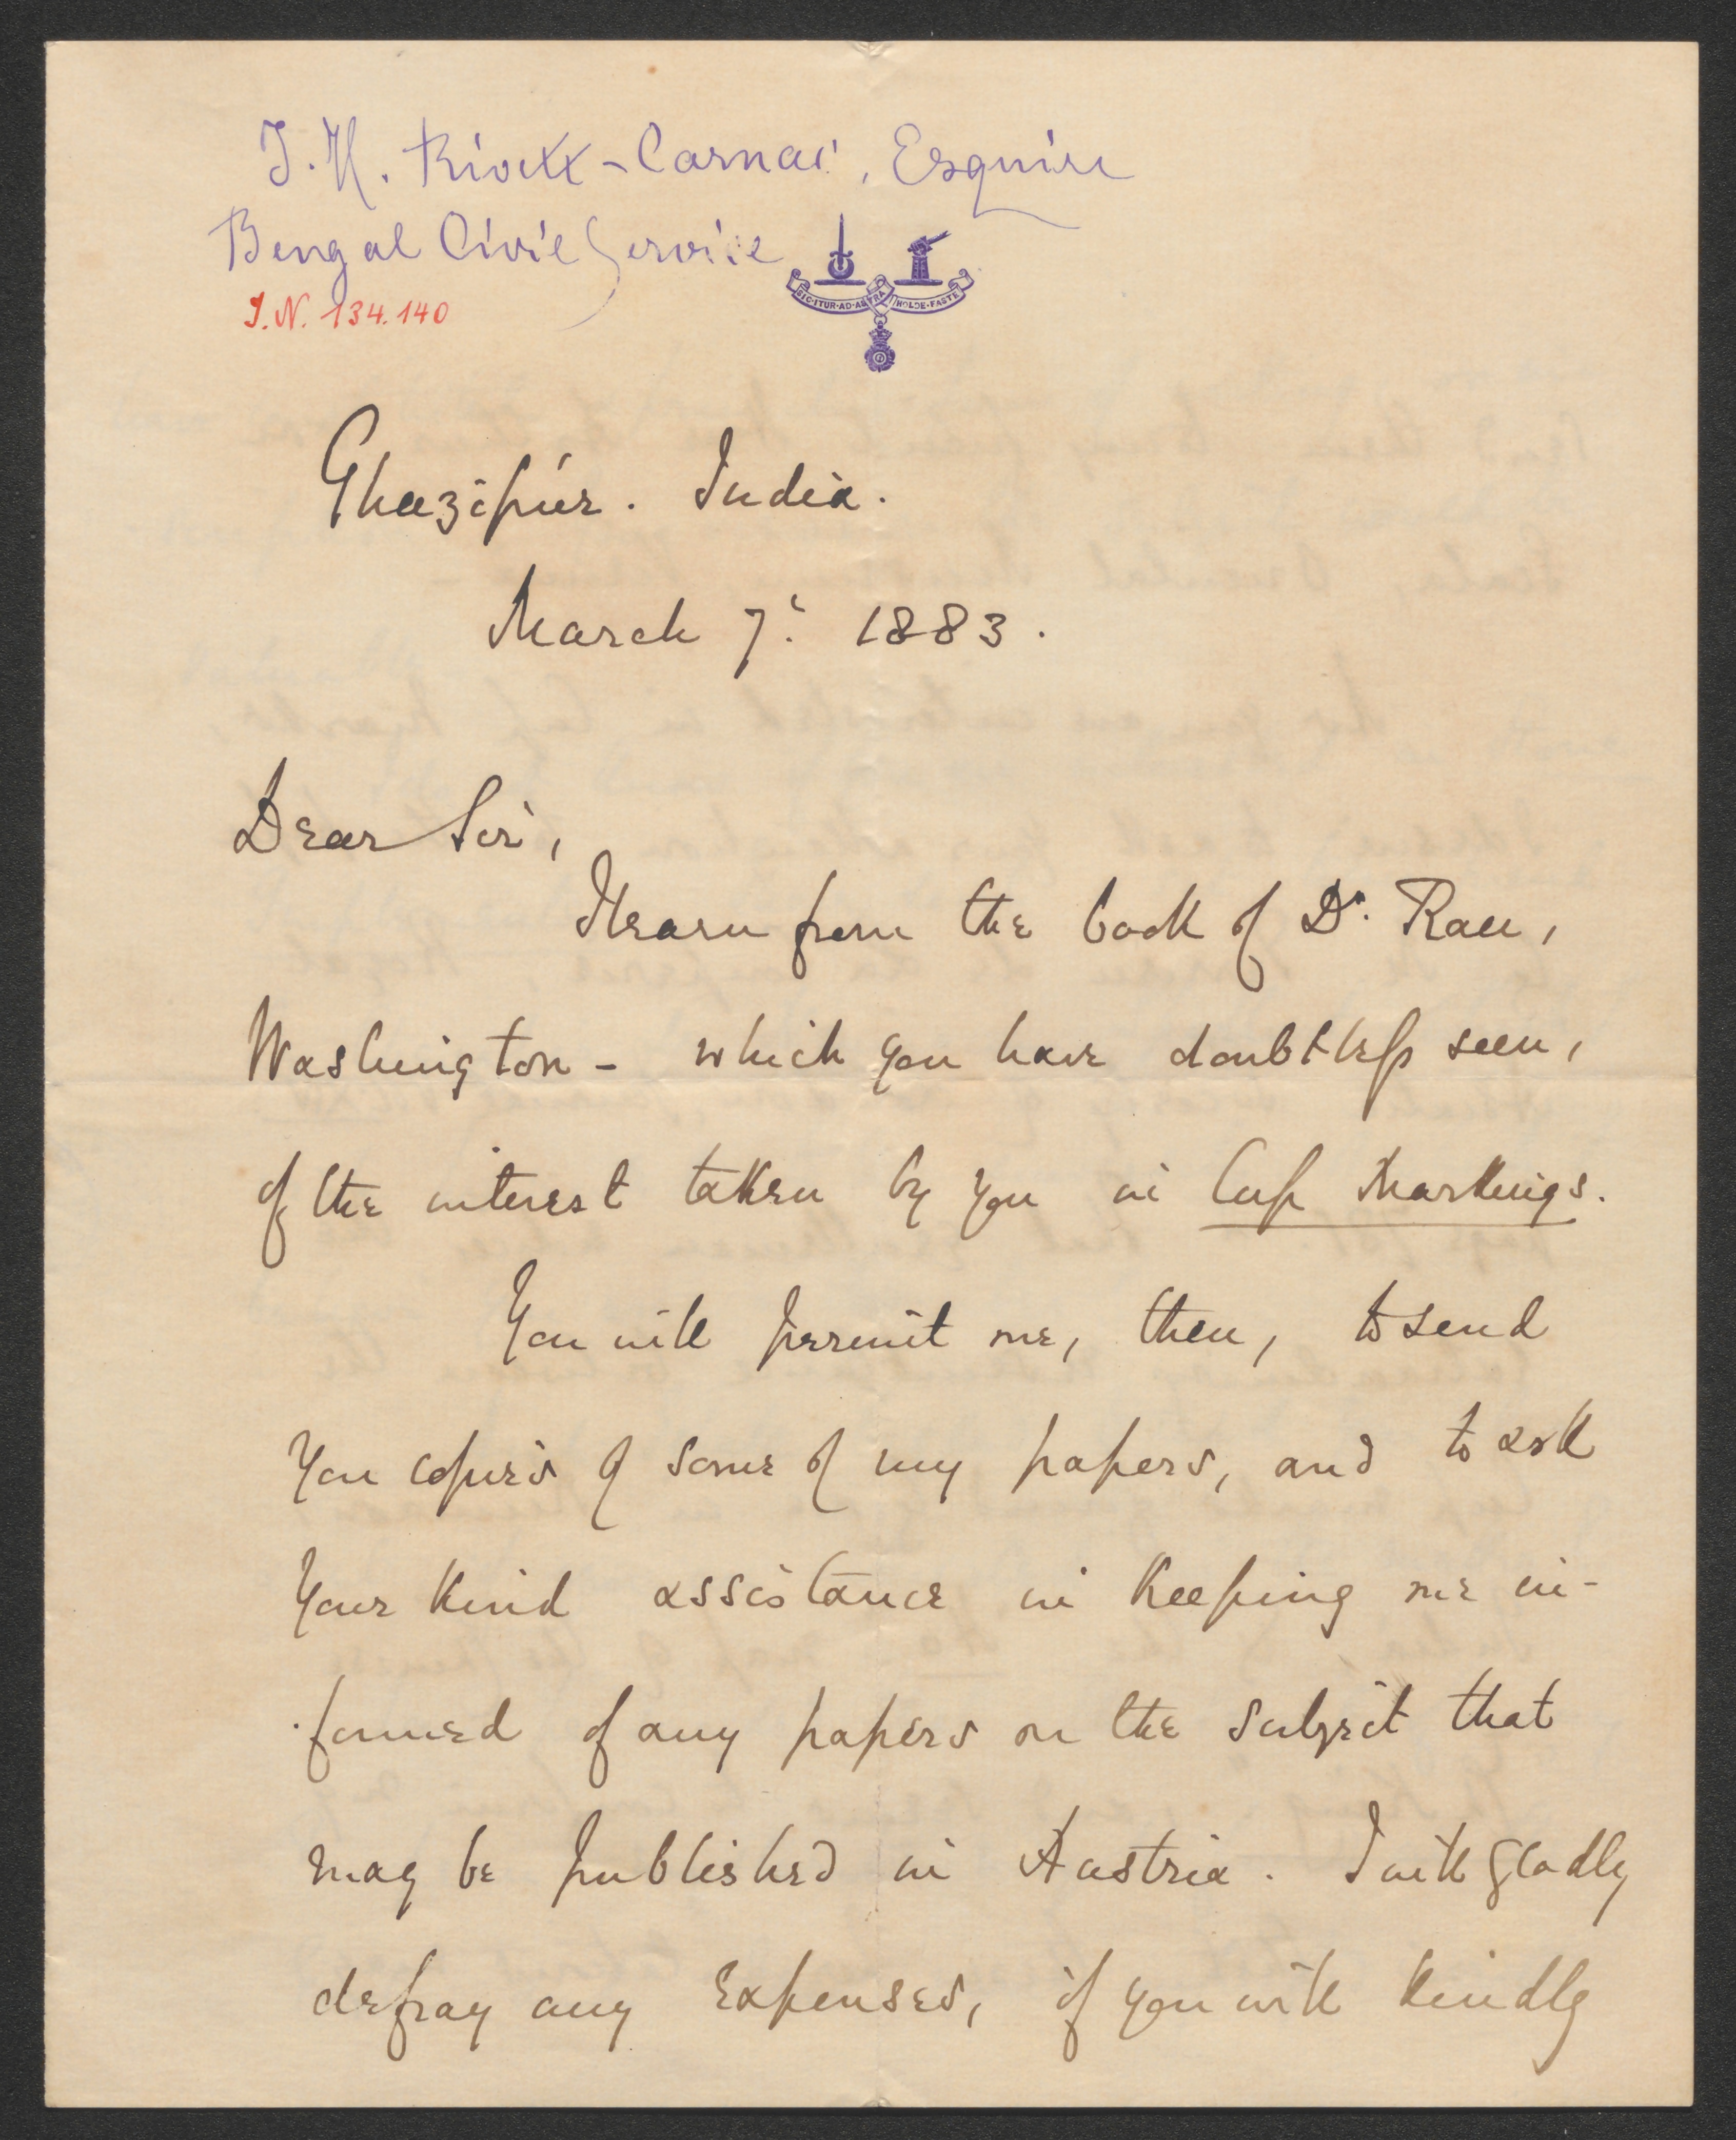 J. H. Rivett-Carnac, Esquire
Bengal Civil Service
SIC·ITUR·AD·ASTRA HOLDE·FASTE
I.N. 134.140
Ghazipúr. India.
March 7: 1883.
Dear Sir,
I learn from the book of Dr. Rau,
Washington - which you have doubtless seen,
of the interest taken by you in Cup Markings.
You will permit me, then, to send
you copies of some of my papers, and to ask
your kind assistance in keeping me in-
formed of any papers on the subject that
may be published in Austria. I will gladly
defray any expenses, if you will kindly